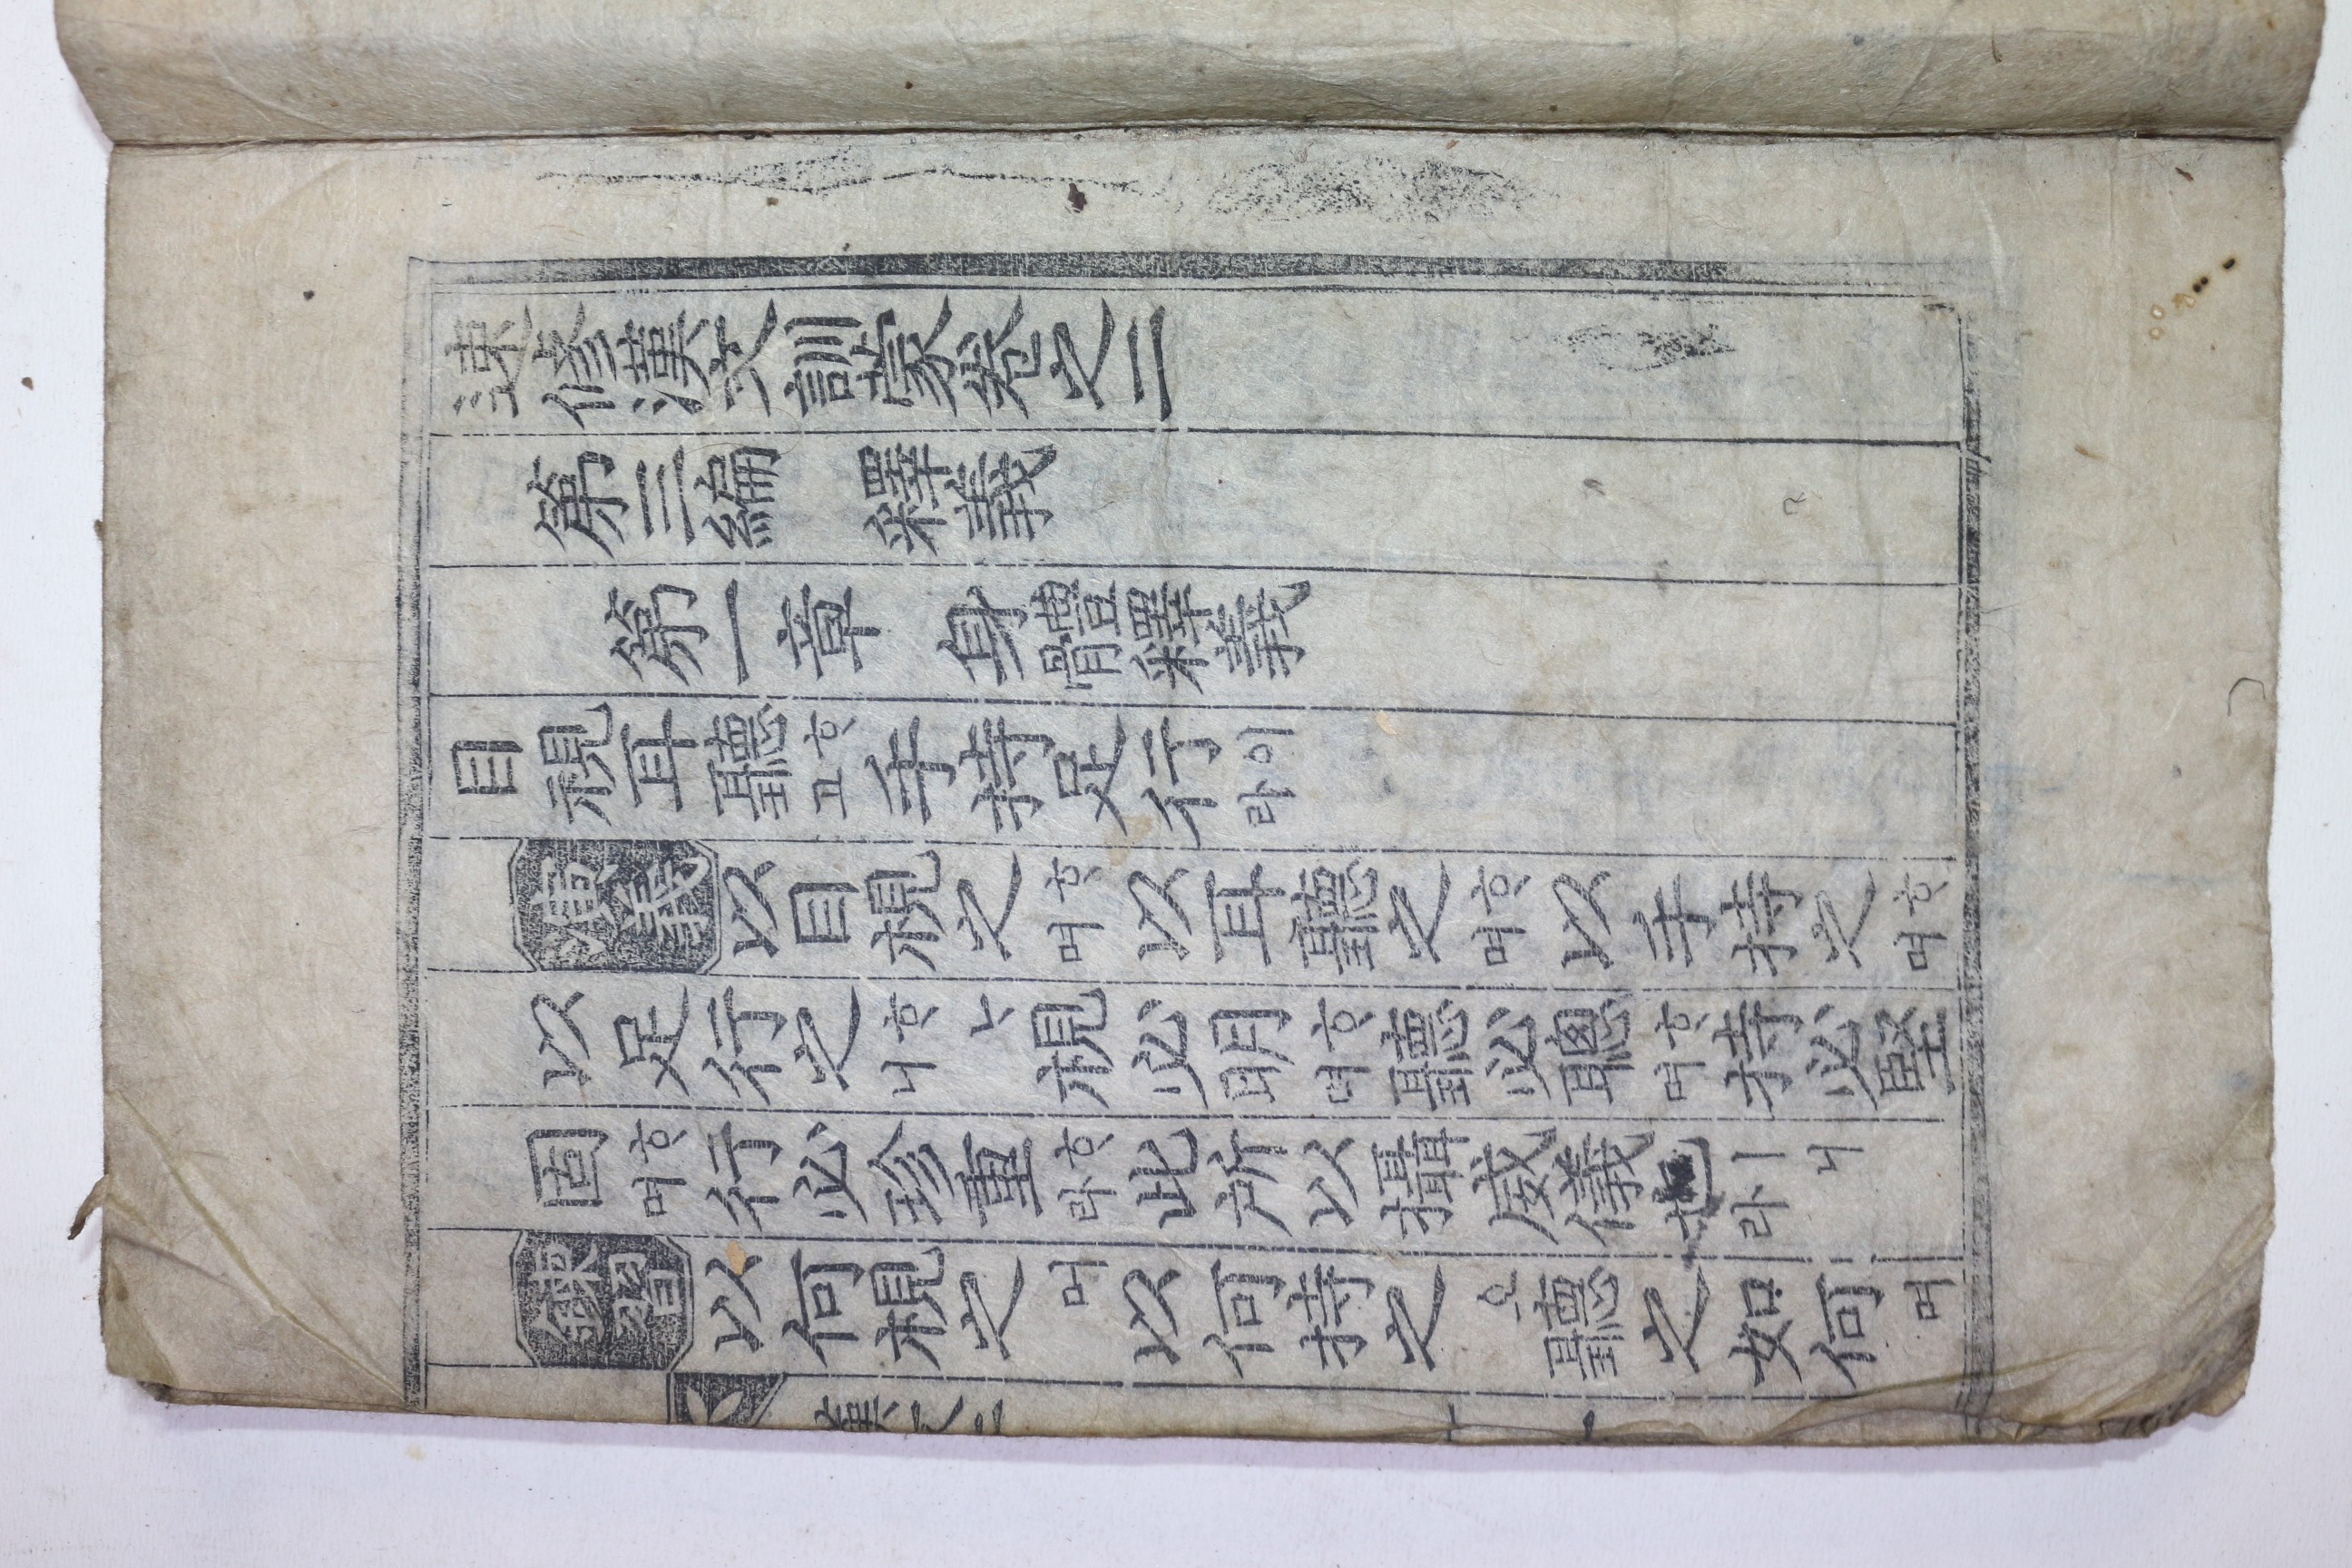 速修漢文訓蒙卷之二
第三編 釋義
第一章 身體釋義
目視耳聽ᄒᆞ고手持足行이라
演義 以目視之ᄒᆞ며以耳聽之ᄒᆞ며以手持之ᄒᆞ며
以足行之ᄒᆞᄂᆞ니視必明ᄒᆞ며聽必聰ᄒᆞ며持必堅
固ᄒᆞ며行必珍重ᄒᆞ라此所以攝威儀也ㅣ니라
練習 以何視之며以何持之오聽之如何ㅣ며